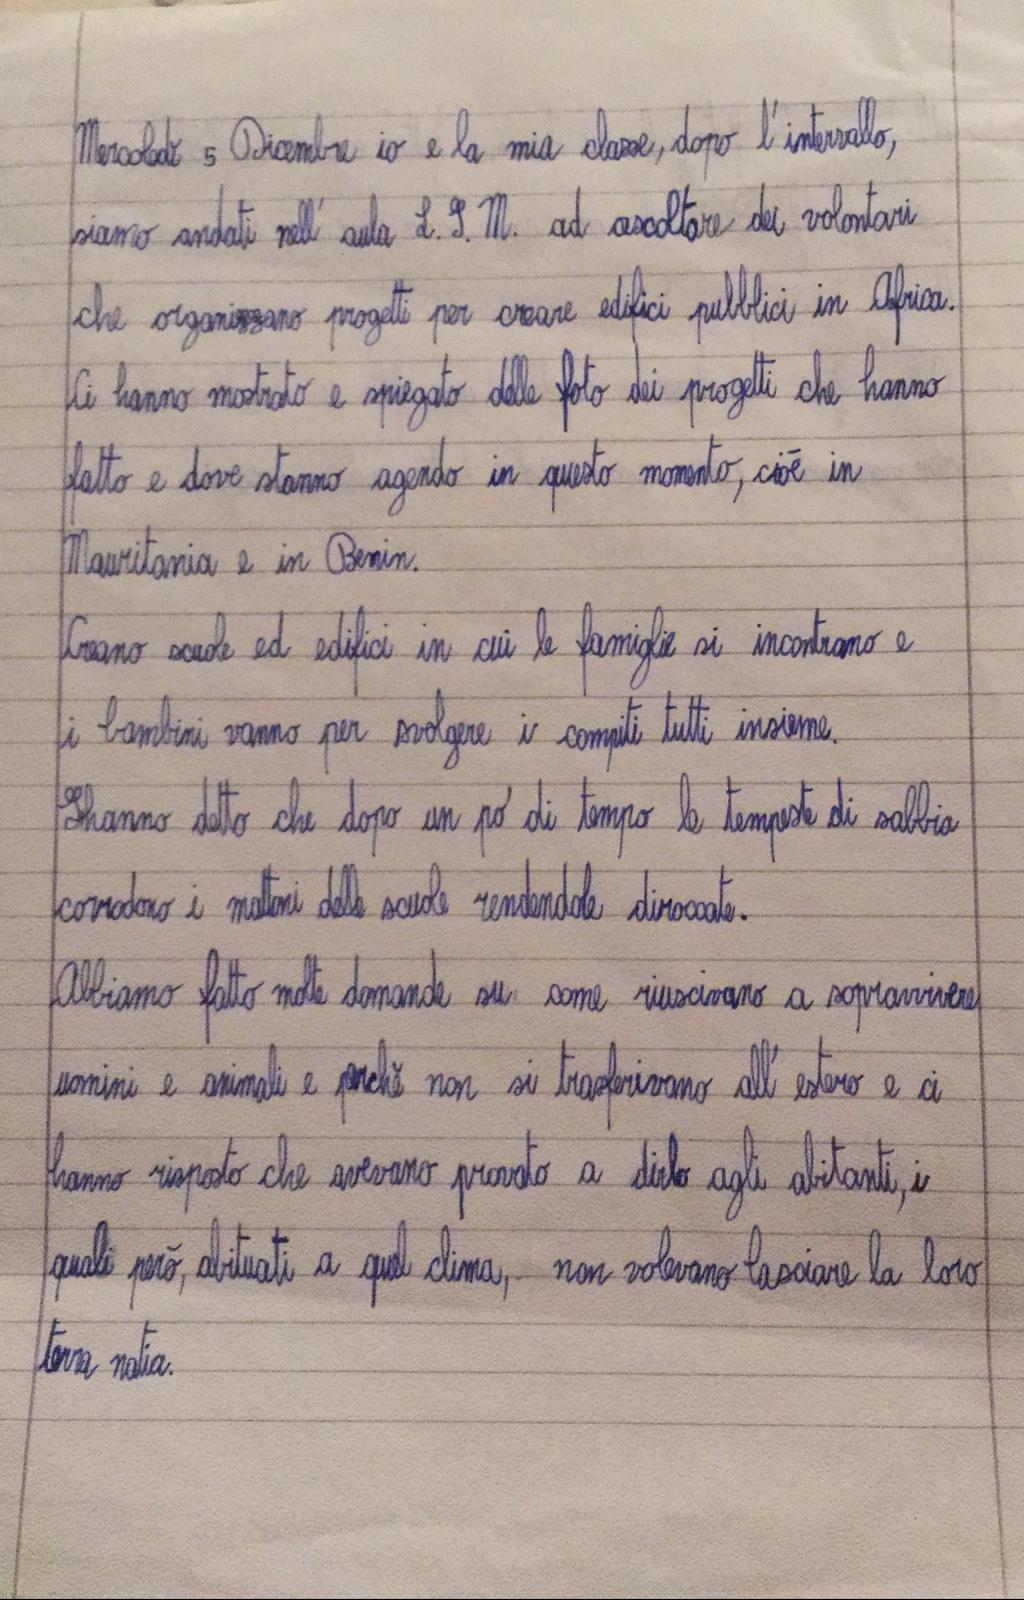 Mercoledì 5 Dicembre io e la mia classe, dopo l'intervallo,
siamo andati nell'aula L.I.M. ad ascoltare dei volontari
che organizzano progetti per creare edifici pubblici in Africa.
Ci hanno mostrato e spiegato delle foto dei progetti che hanno
fatto e dove stanno agendo in questo momento, cioè in
Mauritania e in Benin.
Creano scuole ed edifici in cui le famiglie si incontrano e
i bambini vanno per svolgere i compiti tutti insieme.
Hanno detto che dopo un po' di tempo le tempeste di sabbia
corrodono i mattoni delle scuole rendendole diroccate.
Abbiamo fatto molte domande su come riuscivano a sopravvivere
uomini e animali e perchè non si trasferivano all'estero e ci
hanno risposto che avevano provato a dirlo agli abitanti, i
quali però, abituati a quel clima, non volevano lasciare la loro
terra natia.